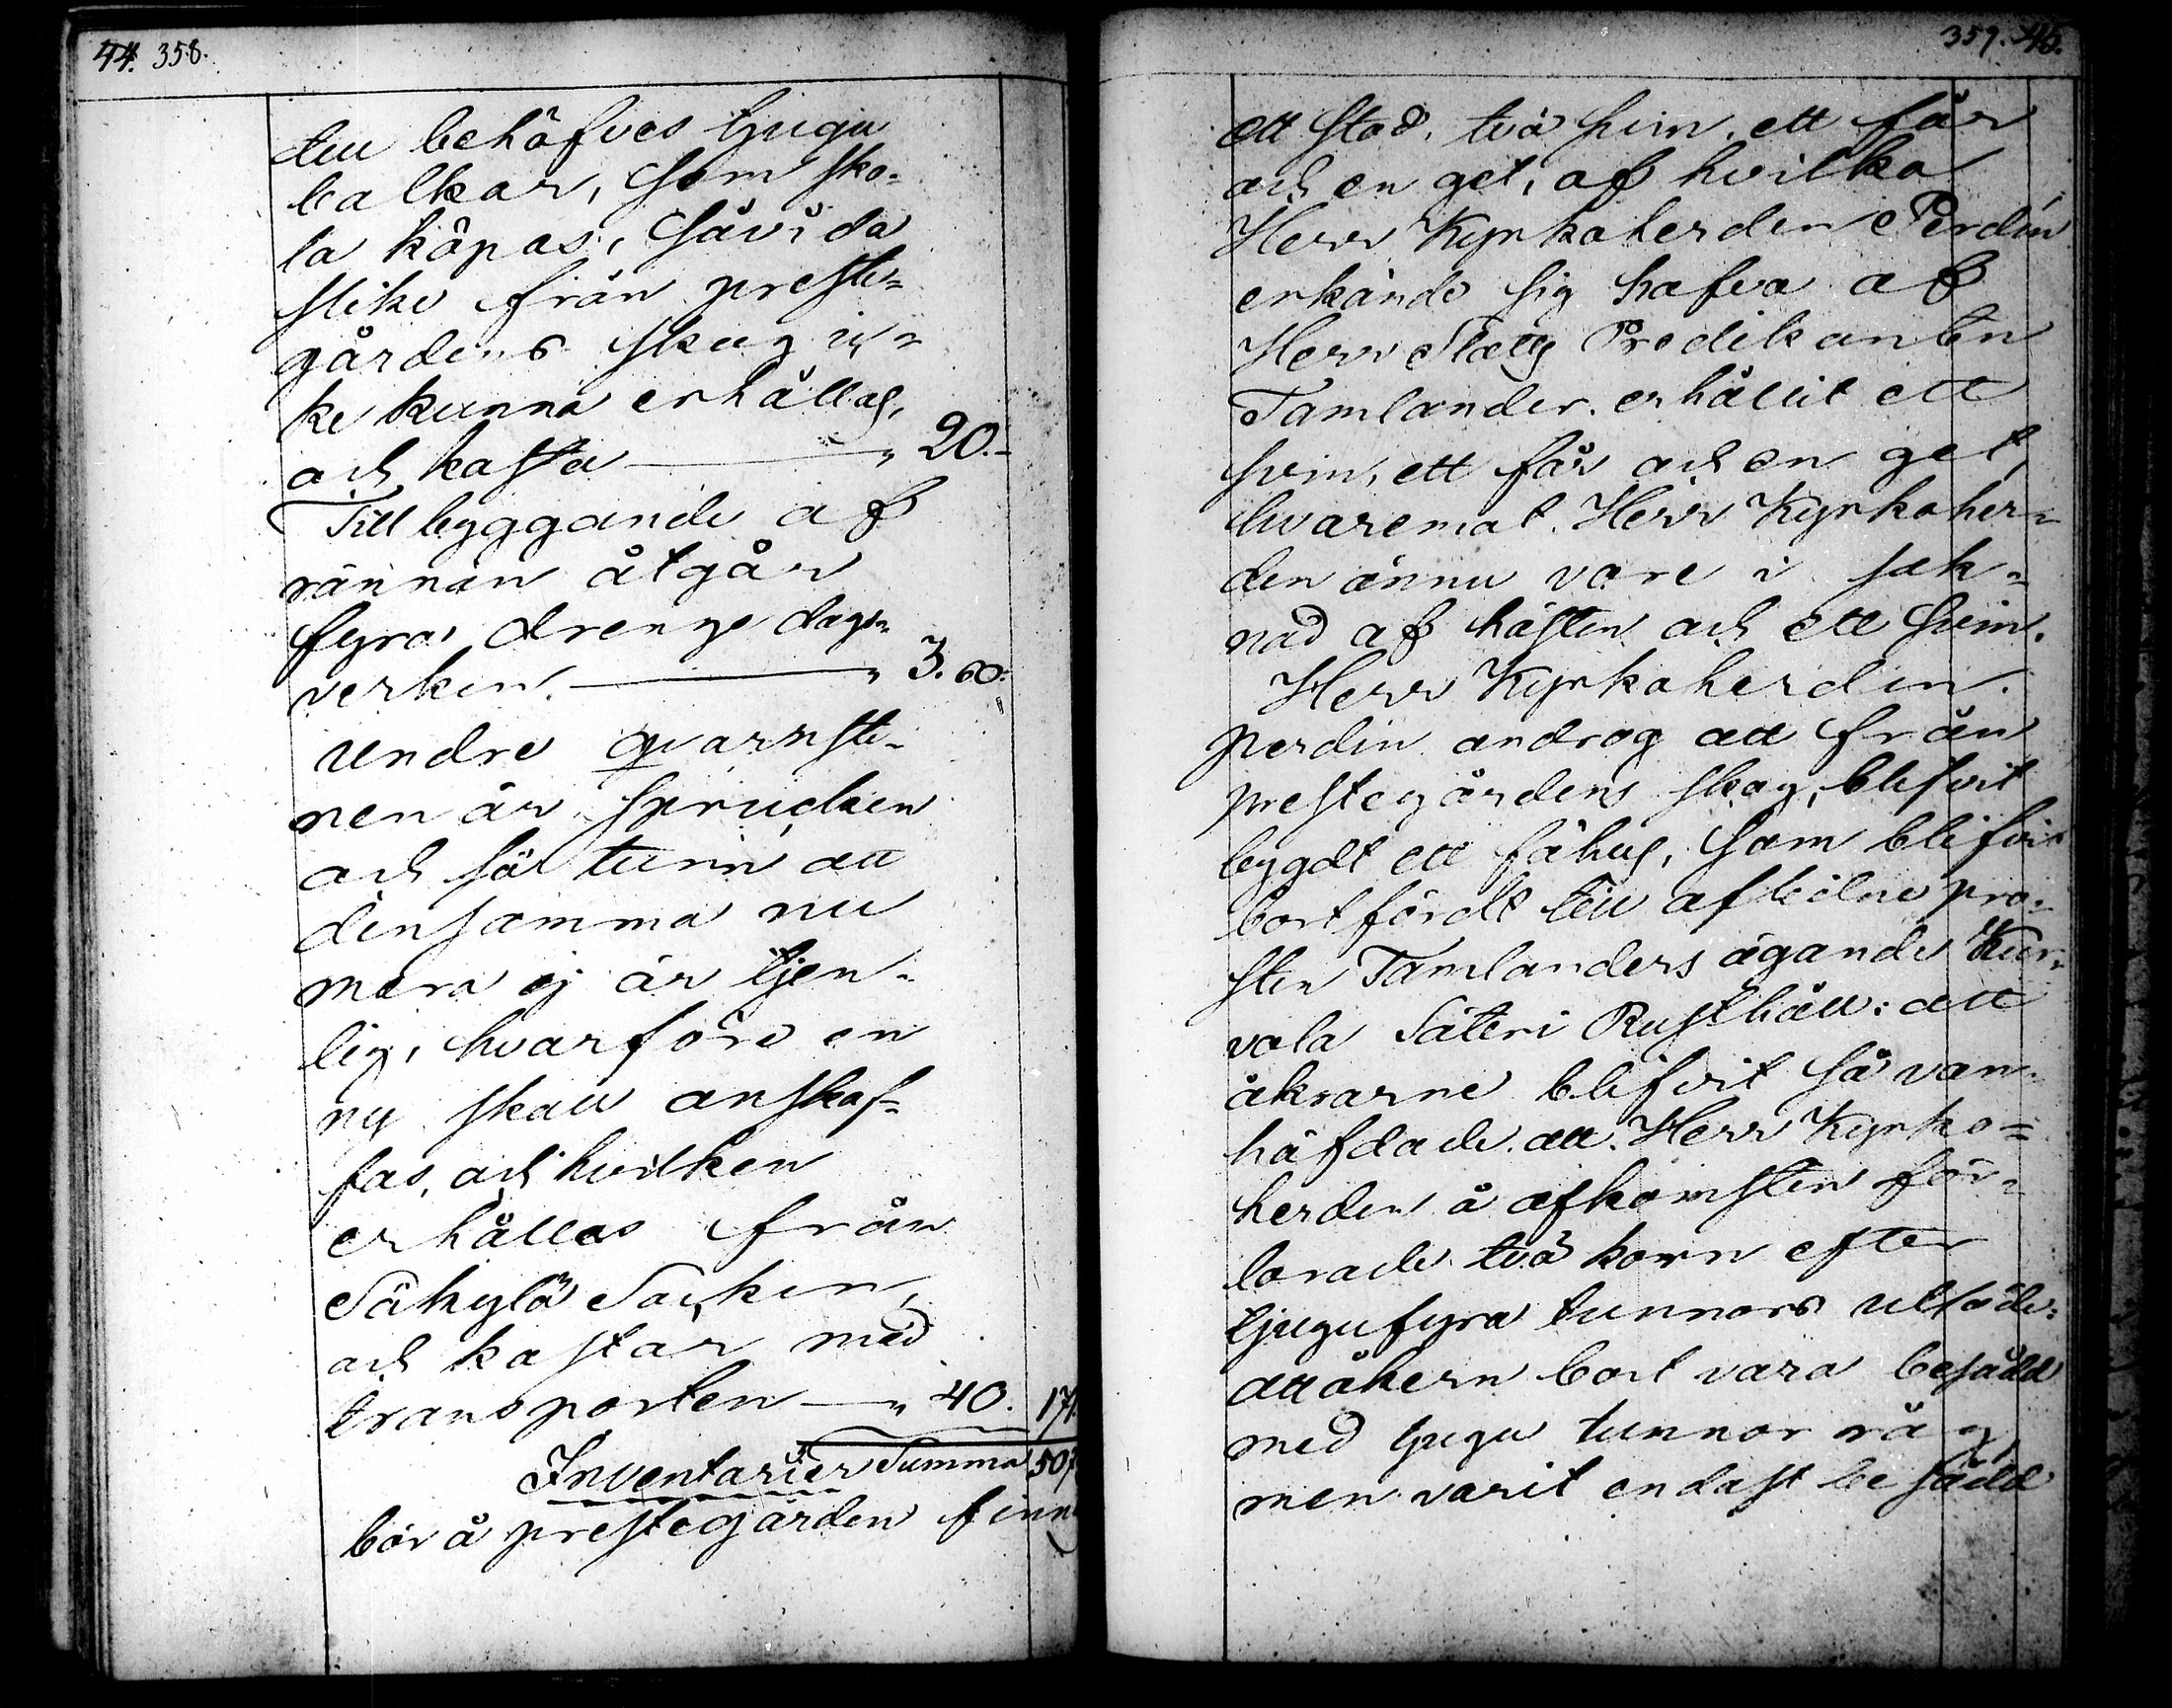 44. 358.
till behöfves tjugu
balkar, som sko-
la köpas, såvida
slike från preste-
gårdens skog ic-
ke kunna erhållas,
och kosta — " 20.-
Till byggande af
rännan åtgår
fyra drenge dags-
verken. — " 3. 60.
Undre qvarnste-
nen är sprucken
och så tunn att
densamma nu
mera ej är tjen-
lig, hvarföre en
ny skall anskaf-
fas, och hvilken
erhålles från
Säkylä Socken,
och kostar med
transporten — " 40. 171.
Summa 507
Inventarier
bör å prestegården finn
359. 45.
ett stod, två svin, ett får
och en get, af hvilka
Herr Kyrkoherden Perdin
erkände sig hafva af
Herr Slotts Predikanten
Tamlander erhållit ett
svin, ett får och en get,
hvaremot Herr Kyrkoher-
den ännu vore i sak-
nad af hästen och ett svin.
Herr Kyrkoherden
Perdin androg att från
prestegårdens skog, blifvit
bygdt ett fähus, som blifvit
bortfördt till aflidne pro-
sten Tamlanders ägande Kur-
vola Säteri Rusthåll: att
åkrarne blifvit så van-
häfdade att Herr Kyrko-
herden å afkomsten för-
lorade två korn efter
tjugufyra tunnors utsäde:
att åkern bort vara besådd
med tjugu tunnor råg,
men varit endast besådd